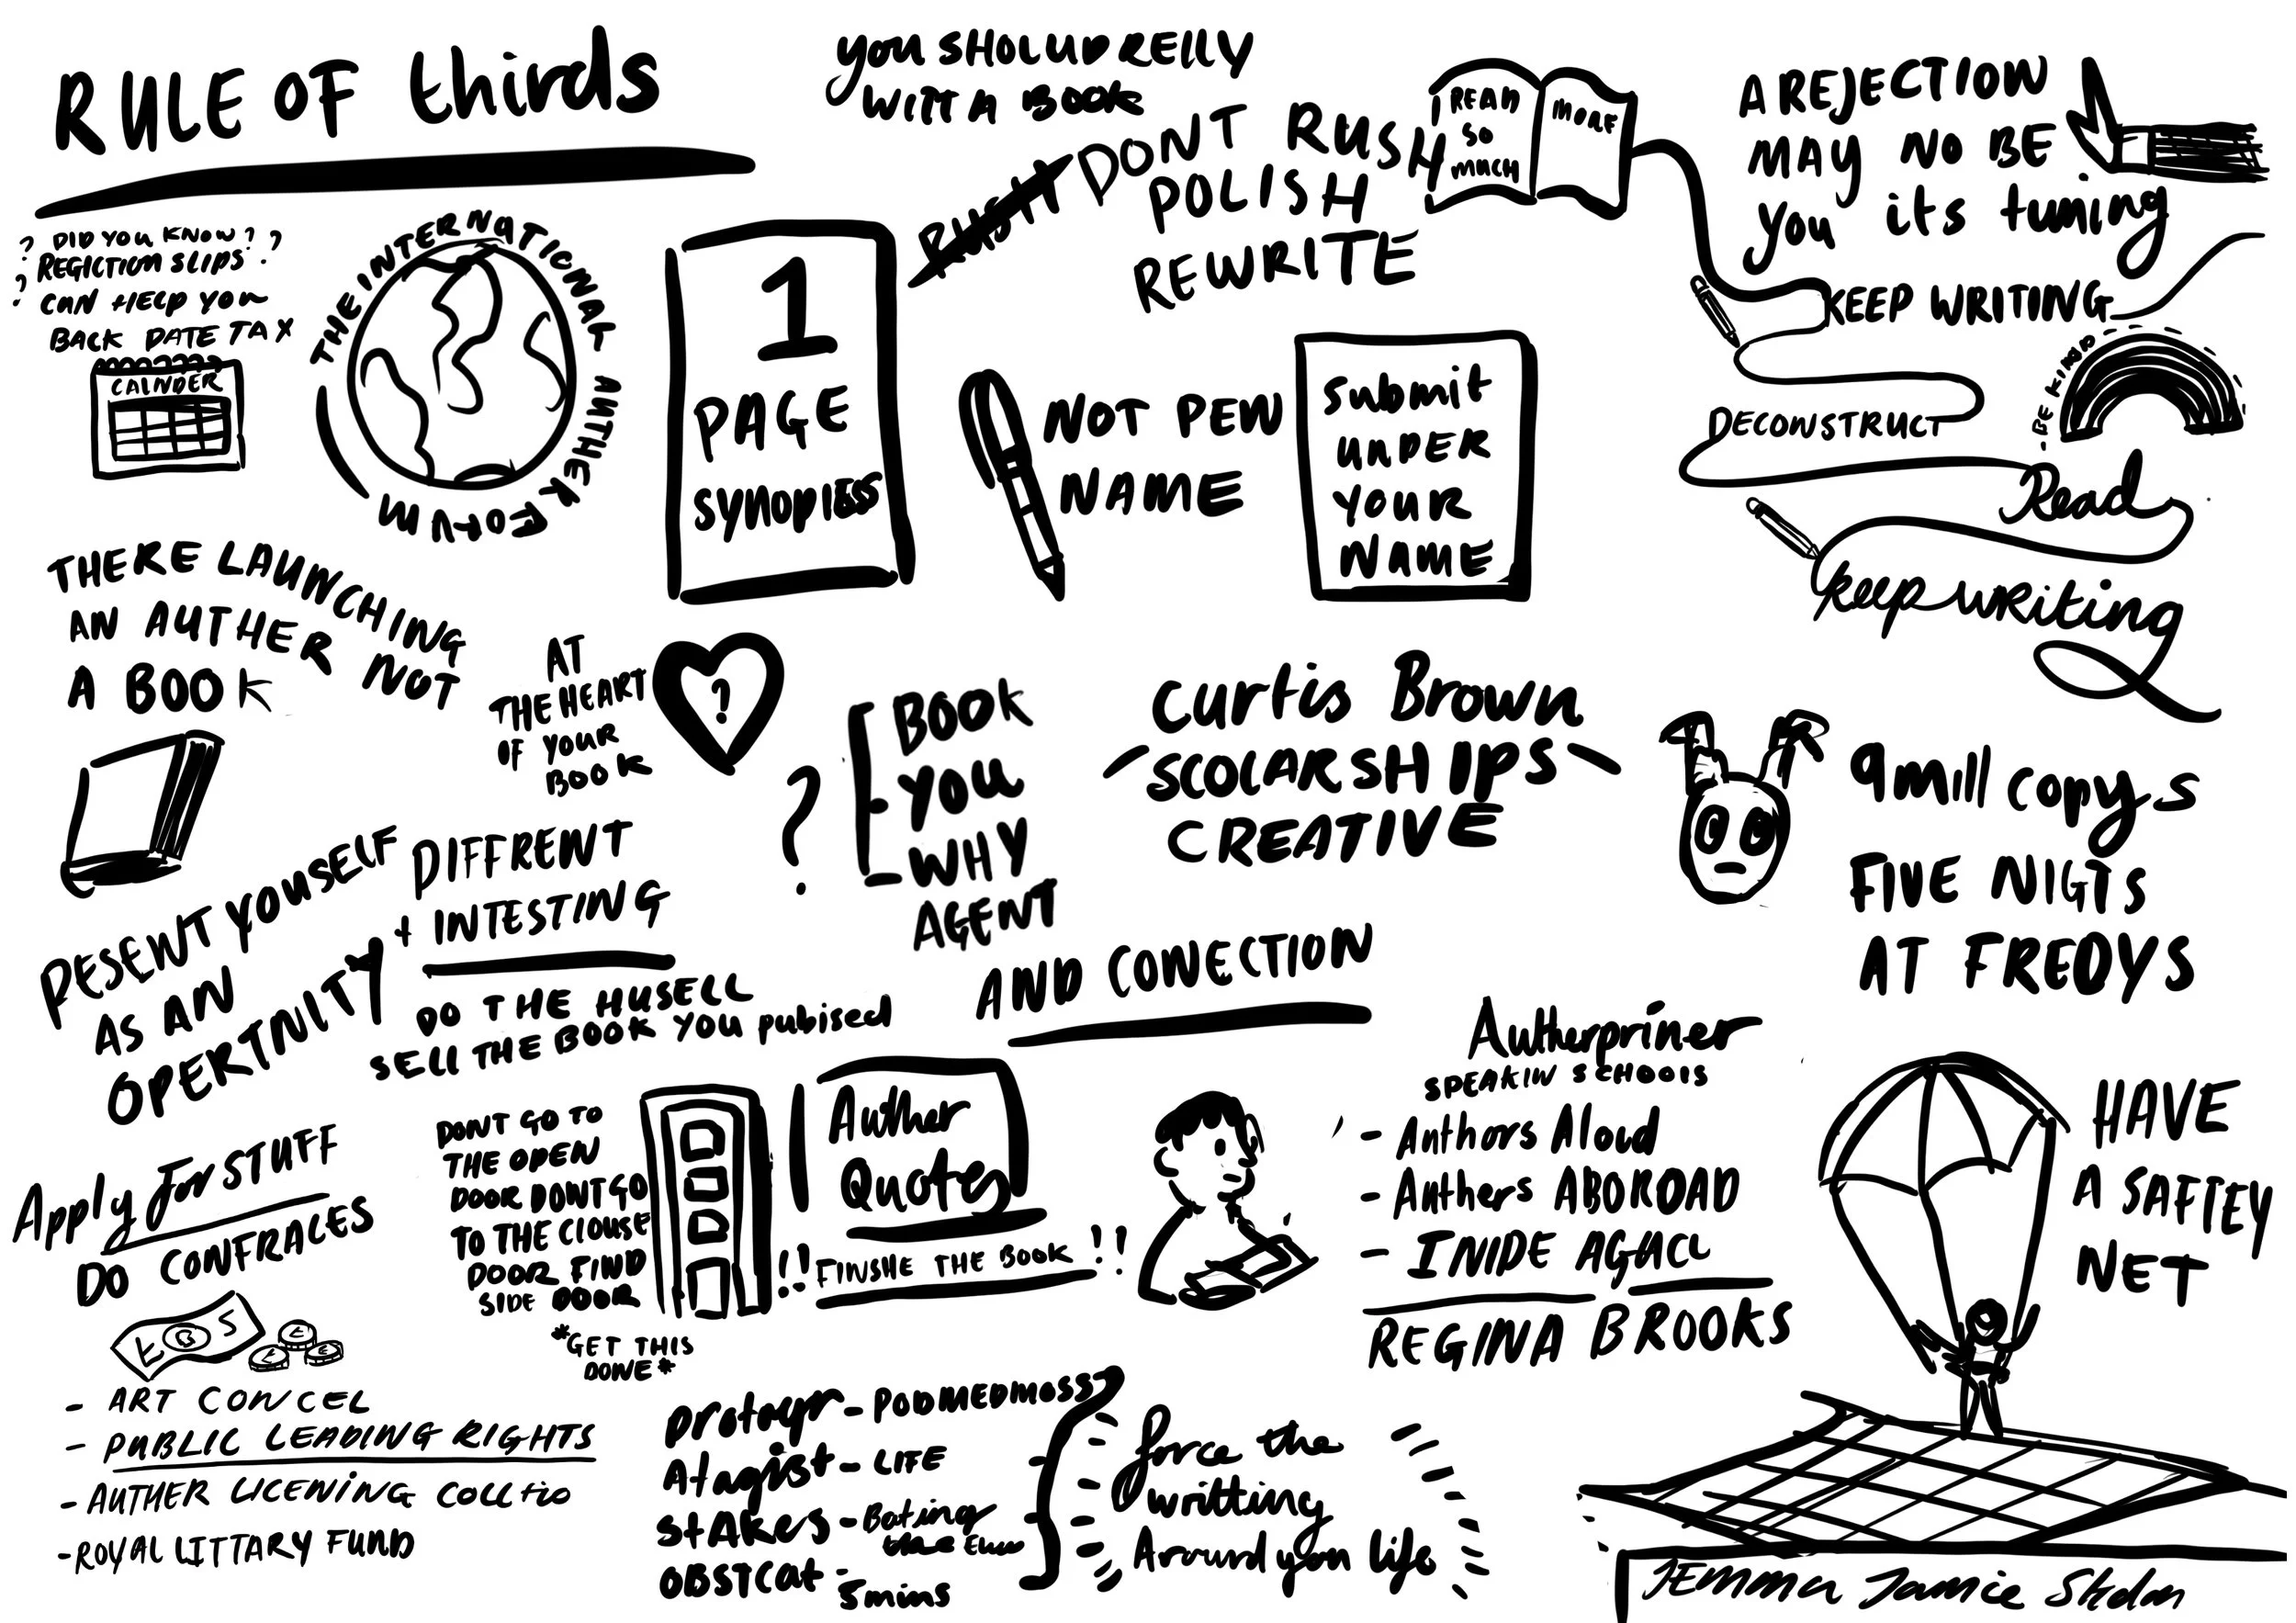 RULE OF thirds
you SHOLUD RELLY
WITT A BOOK
RUSH DONT RUSH
POLISH
REWRITE
READ
SO
MUCH
MORE
A REJECTION
MAY NO BE
you its tuming
KEEP WRITING
BE KIND
DECONSTRUCT
Read
keep writing
? DID YOU KNOW? ?
REGICTION SLIPS ?
? CAN HELP YOU
BACK DATE TAX
CALNDER
THE INTERNATIONAL AUTHER FORUM
1
PAGE
SYNOPIES
NOT PEW
NAME
Submit
UNDER
YOUR
NAME
THERE LAUNCHING
AN AUTHER NOT
A BOOK
AT
THE HEART
OF YOUR
BOOK
?
?
BOOK
YOU
WHY
AGENT
AND CONECTION
Curtis Brown
SCOLARSHIPS
CREATIVE
9 mill copys
FIVE NIGTS
AT FREDYS
PESENT YOUSELF
AS AN
OPERTNITY
DIFFRENT
+ INTESTING
DO THE HUSELL
SELL THE BOOK YOU pubised
Apply for STUFF
DO CONFRACES
- ART CONCEL
- PUBLIC LEADING RIGHTS
- AUTHER LICENING COLLtio
- ROYAL LITTARY FUND
DONT GO TO
THE OPEN
DOOR DONT GO
TO THE CLOUSE
DOOR FIND
SIDE DOOR
*GET THIS
DONE*
Auther
Quotes
!! FINSHE THE BOOK !!
Autherpriner
SPEAKIN SCHOOLS
- Authors Aloud
- Authers ABOROAD
- INIDE AGHCL
REGINA BROOKS
HAVE
A SAFTEY
NET
Protagr - PODMEDMOSS
Atagist - LIFE
STAKES - Bating
OBSTCAt - 5mins
force the
writting
Around you life
JEMMA Jamie